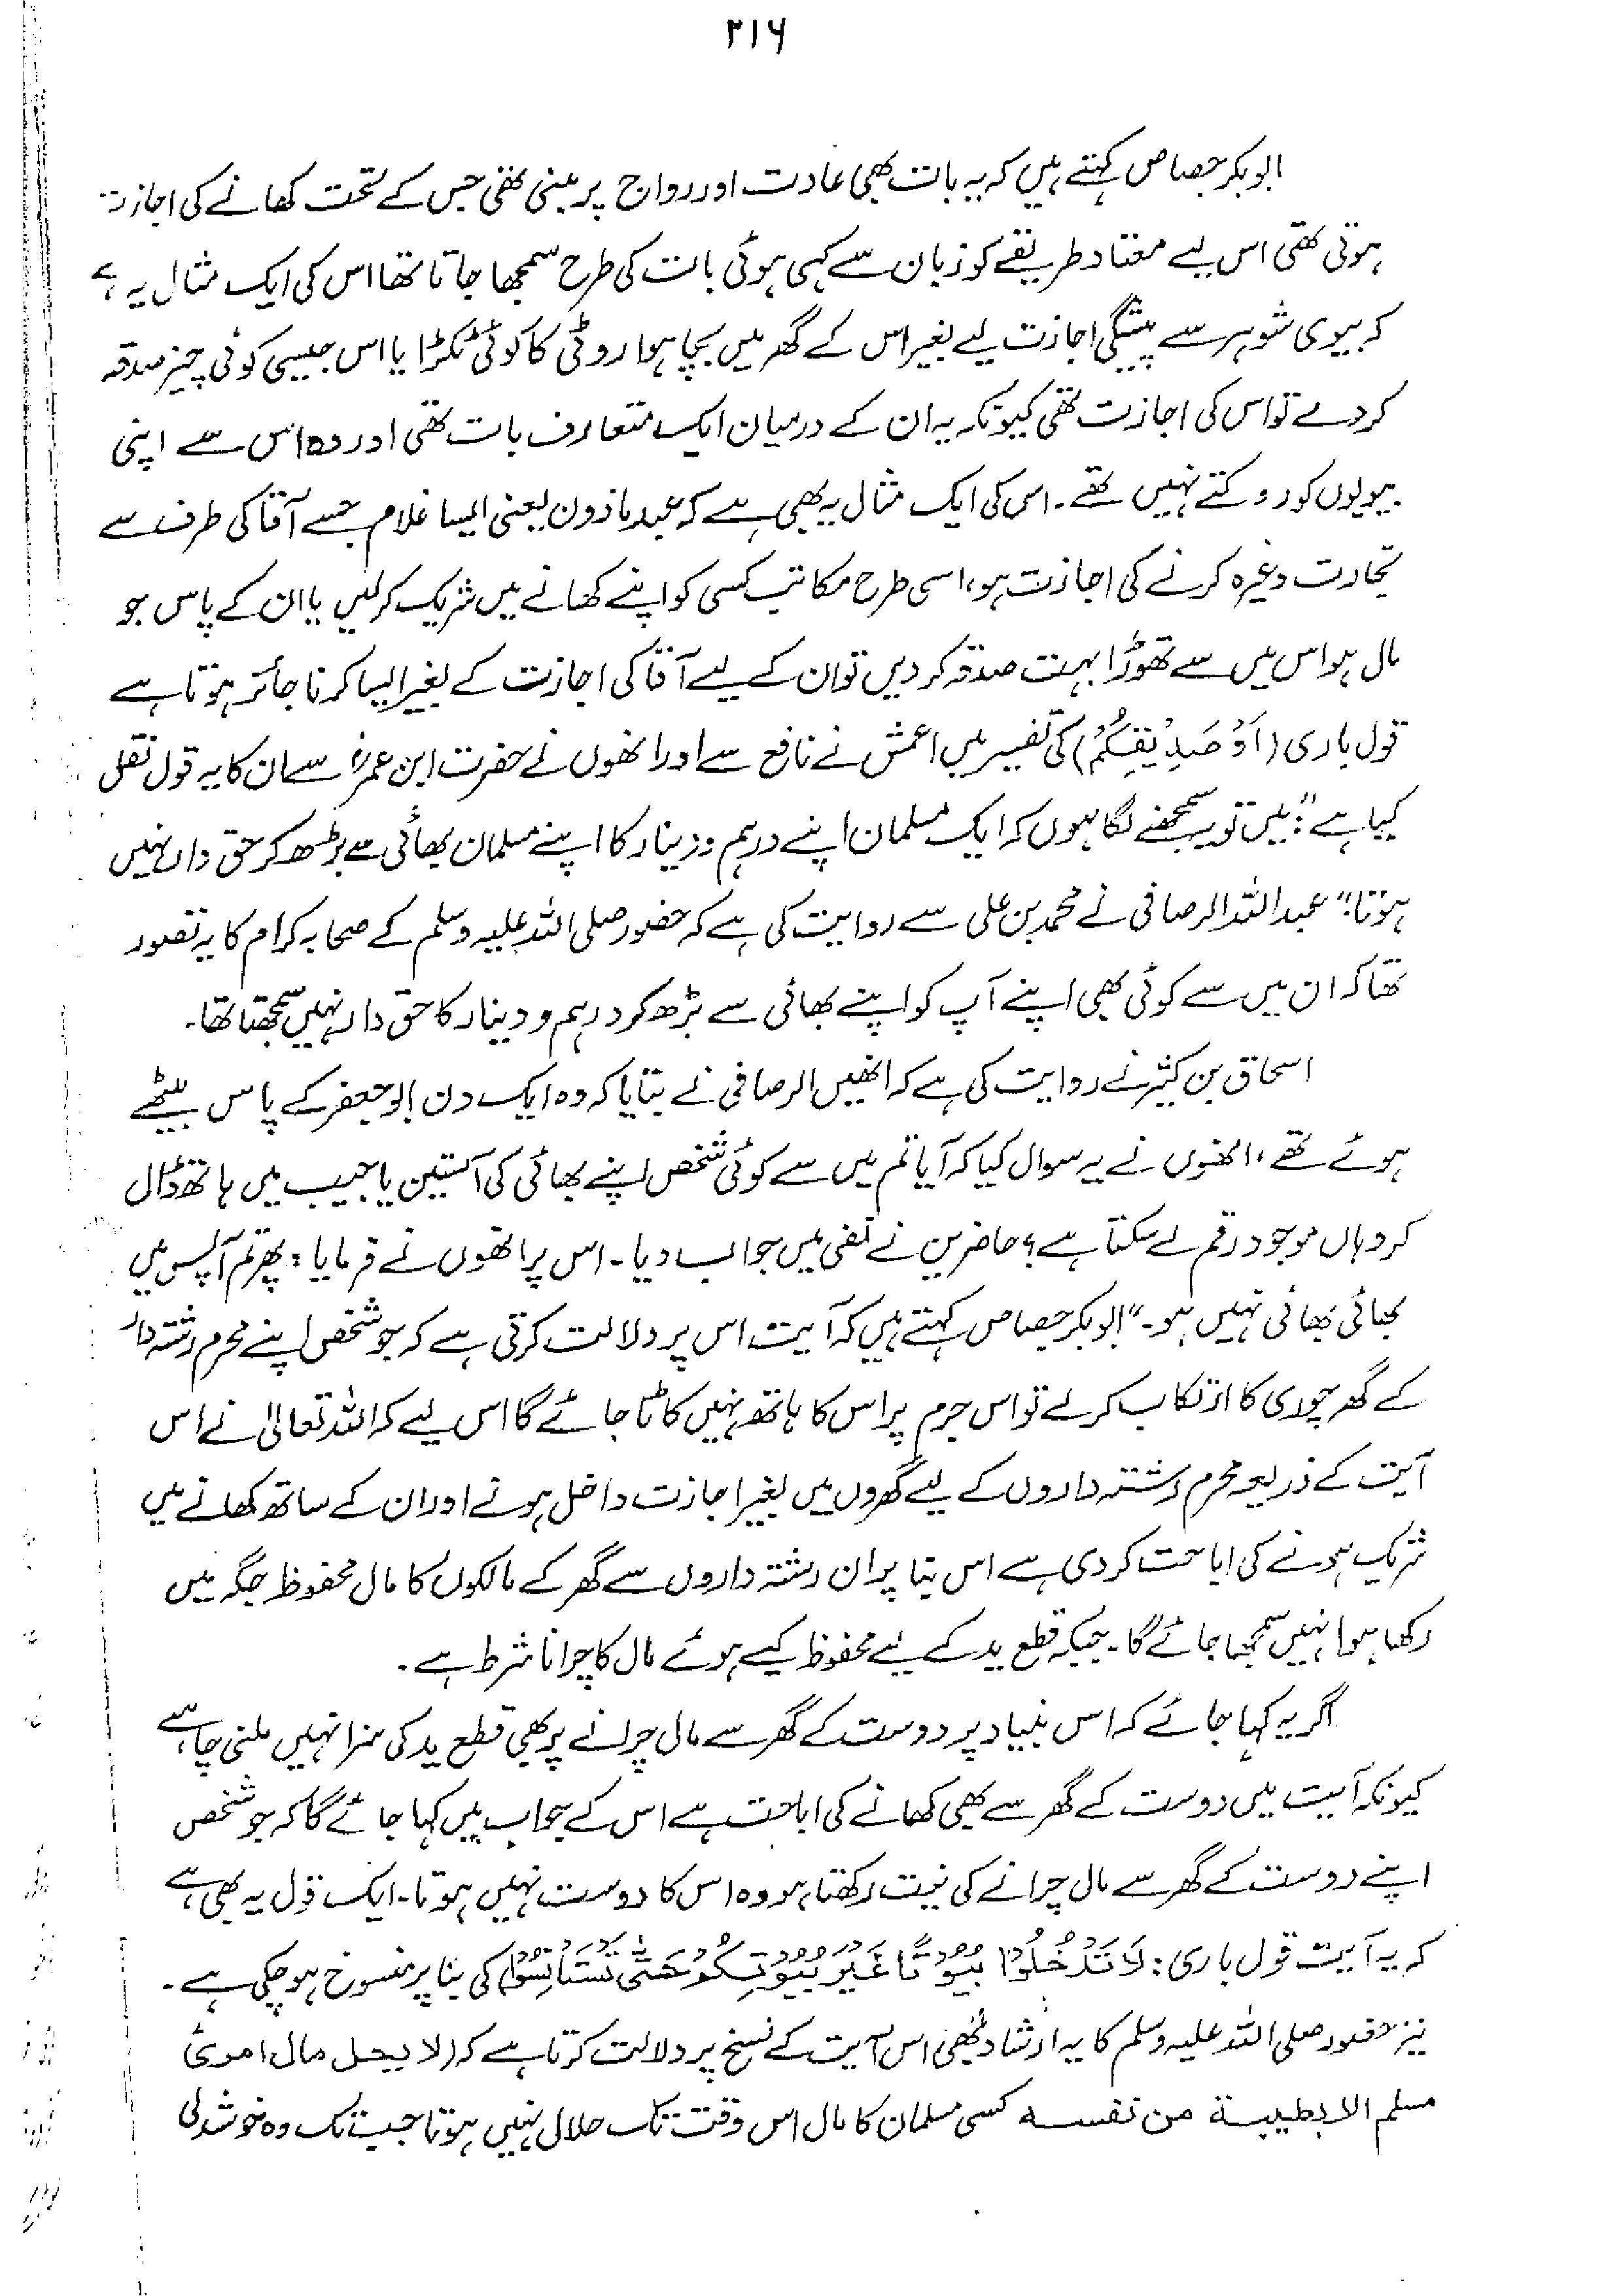 ۲۱۶
ابوبکر جصاص کہتے ہیں کہ یہ بات بھی عادت اور رواج پر مبنی تھی جس کے تحت کھانے کی اجازت
ہوتی تھی اس لیے معتاد طریقے کو زبان سے کہی ہوئی بات کی طرح سمجھا جاتا تھا اس کی ایک مثال یہ ہے
کہ بیوی شوہر سے پیشگی اجازت لیے بغیر اس کے گھر میں بچا ہوا روٹی کا کوئی ٹکڑا یا اس جیسی کوئی چیز صدقہ
کر دے تو اس کی اجازت تھی کیونکہ یہ ان کے درمیان ایک متعارف بات تھی اور وہ اس سے اپنی
بیویوں کو روکتے نہیں تھے۔ اس کی ایک مثال یہ بھی ہے کہ عبد ماذون یعنی ایسا غلام جسے آقا کی طرف سے
تجارت وغیرہ کرنے کی اجازت ہو، اسی طرح مکاتب کسی کو اپنے کھانے میں شریک کرلیں یا ان کے پاس جو
مال ہو اس میں سے تھوڑا بہت صدقہ کر دیں تو ان کے لیے آقا کی اجازت کے بغیر ایسا کرنا جائز ہوتا ہے
قول باری (اَوْ صَدِیْقِکُمْ) کی تفسیر میں اعمش نے نافع سے اور انھوں نے حضرت ابن عمرؓ سے ان کا یہ قول نقل
کیا ہے: "میں تو یہ سمجھنے لگا ہوں کہ ایک مسلمان اپنے درہم و دینار کا اپنے مسلمان بھائی سے بڑھ کر حق دار نہیں
ہوتا۔" عبداللہ الرصافی نے محمد بن علی سے روایت کی ہے کہ حضور صلی اللہ علیہ وسلم کے صحابہ کرام کا یہ تصور
تھا کہ ان میں سے کوئی بھی اپنے آپ کو اپنے بھائی سے بڑھ کر درہم و دینار کا حق دار نہیں سمجھتا تھا۔
اسحاق بن کثیر نے روایت کی ہے کہ انھیں الرصافی نے بتایا کہ وہ ایک دن ابو جعفر کے پاس بیٹھے
ہوئے تھے، انھوں نے یہ سوال کیا کہ آیا تم میں سے کوئی شخص اپنے بھائی کی آستین یا جیب میں ہاتھ ڈال
کر وہاں موجود رقم لے سکتا ہے؟ حاضرین نے نفی میں جواب دیا۔ اس پر انھوں نے فرمایا: پھر تم آپس میں
بھائی بھائی نہیں ہو۔" ابوبکر جصاص کہتے ہیں کہ آیت اس پر دلالت کرتی ہے کہ جو شخص اپنے محرم رشتہ دار
کے گھر چوری کا ارتکاب کر لے تو اس جرم پر اس کا ہاتھ نہیں کاٹا جائے گا اس لیے کہ اللہ تعالیٰ نے اس
آیت کے ذریعہ محرم رشتہ داروں کے لیے گھروں میں بغیر اجازت داخل ہونے اور ان کے ساتھ کھانے میں
شریک ہونے کی اباحت کر دی ہے اس بنا پر ان رشتہ داروں سے گھر کے مالکوں کا مال محفوظ جگہ میں
رکھا ہوا نہیں سمجھا جائے گا۔ جبکہ قطع ید کے لیے محفوظ کیے ہوئے مال کا چرانا شرط ہے۔
اگر یہ کہا جائے کہ اس بنیاد پر دوست کے گھر سے مال چرانے پر بھی قطع ید کی سزا نہیں ملنی چاہیے
کیونکہ آیت میں دوست کے گھر سے بھی کھانے کی اباحت ہے اس کے جواب میں کہا جائے گا کہ جو شخص
اپنے دوست کے گھر سے مال چرانے کی نیت رکھتا ہو وہ اس کا دوست نہیں ہوتا۔ ایک قول یہ بھی ہے
کہ یہ آیت قول باری: لَا تَدْخُلُوْا بُیُوْتًا غَیْرَ بُیُوْتِکُمْ حَتّٰی تَسْتَأْنِسُوْا کی بنا پر منسوخ ہو چکی ہے۔
نیز حضور صلی اللہ علیہ وسلم کا یہ ارشاد بھی اس آیت کے نسخ پر دلالت کرتا ہے کہ (لا یحل مال امرئ
مسلم الا بطیبۃ من نفسہ کسی مسلمان کا مال اس وقت تک حلال نہیں ہوتا جب تک وہ خوشدلی